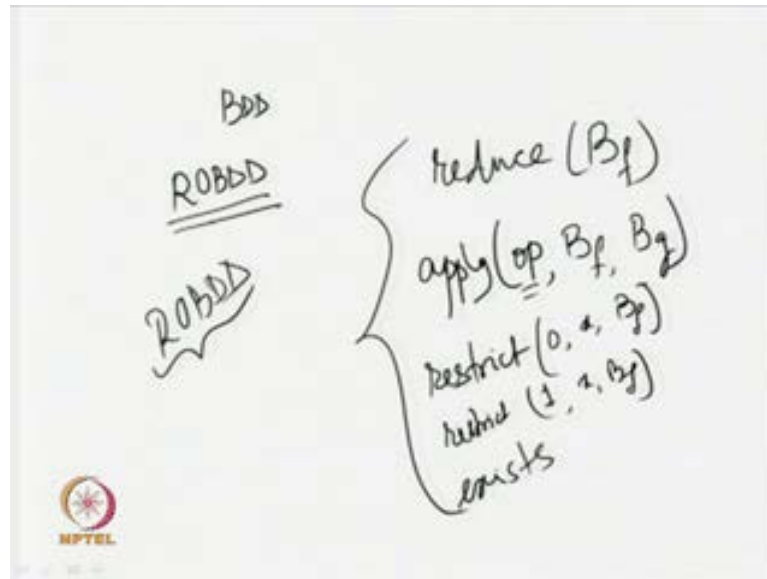 BDD
ROBDD
ROBDD
reduce (Bf)
apply (op, Bf, Bg)
restrict (0, x, Bf)
restrict (1, x, Bf)
exists
NPTEL